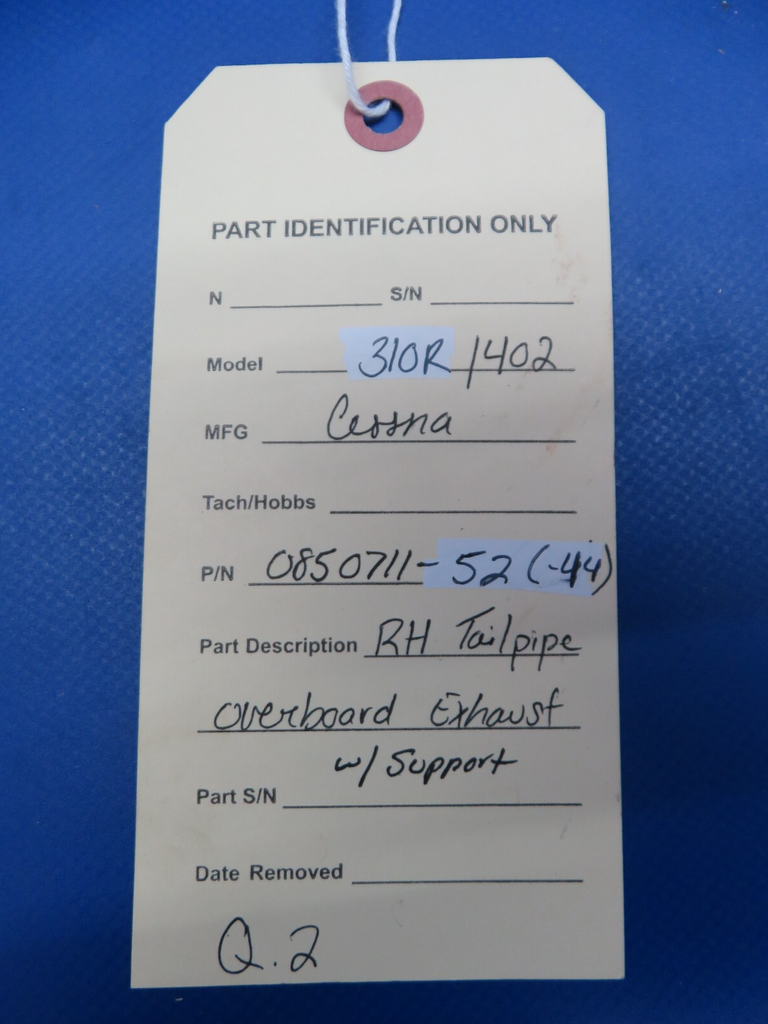 PART IDENTIFICATION ONLY
N S/N
Model 310R/1402
MFG Cessna
Tach/Hobbs
P/N 0850711-52 (-44)
Part Description RH Tailpipe
overboard Exhaust
w/ Support
Part S/N
Date Removed
Q.2